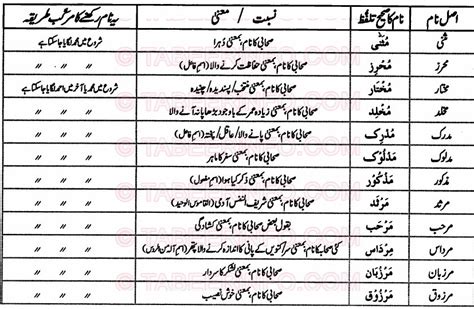 اصل نام نام کا صحیح تلفظ نسبت / معنی یہ نام رکھنے کا مرکب طریقہ
مثنی مُثَنّٰی صحابی کا نام؛ بمعنی دُہرا شروع میں محمد لگایا جاسکتا ہے
محرز مُحْرِز صحابی کا نام؛ بمعنی حفاظت کرنے والا (اسم فاعل) // // //
مختار مُخْتَار صحابی کا نام؛ بمعنی منتخب / پسندیدہ / چنیدہ شروع میں محمد یا آخر میں احمد لگایا جاسکتا ہے
مخلد مُخْلِد صحابی کا نام؛ بمعنی زیادہ عمر کے باوجود بڑھاپا نہ آنے والا // // //
مدرک مُدْرِک صحابی کا نام؛ بمعنی پانے والا / عاقل / پختہ (اسم فاعل) // // //
مدلوک مَدْلُوْک صحابی کا نام؛ بمعنی سفر کا ماہر // // //
مذکور مَذْکُوْر صحابی کا نام؛ بمعنی ذکر کیا ہوا (اسم مفعول) // // //
مرثد مَرْثَد صحابی کا نام؛ بمعنی شریف النفس آدمی (القاموس الوحید) // // //
مرحب مَرْحَب بقول بعض صحابی کا نام؛ بمعنی کشادگی // // //
مرداس مِرْدَاس کئی صحابہ کا نام؛ بمعنی کنویں کے پانی کا اندازہ کرنے والا پتھر // // //
مرزبان مَرْزُبَان صحابی کا نام؛ بمعنی لشکر کا سردار // // //
مرزوق مَرْزُوْق صحابی کا نام؛ بمعنی خوش نصیب // // //